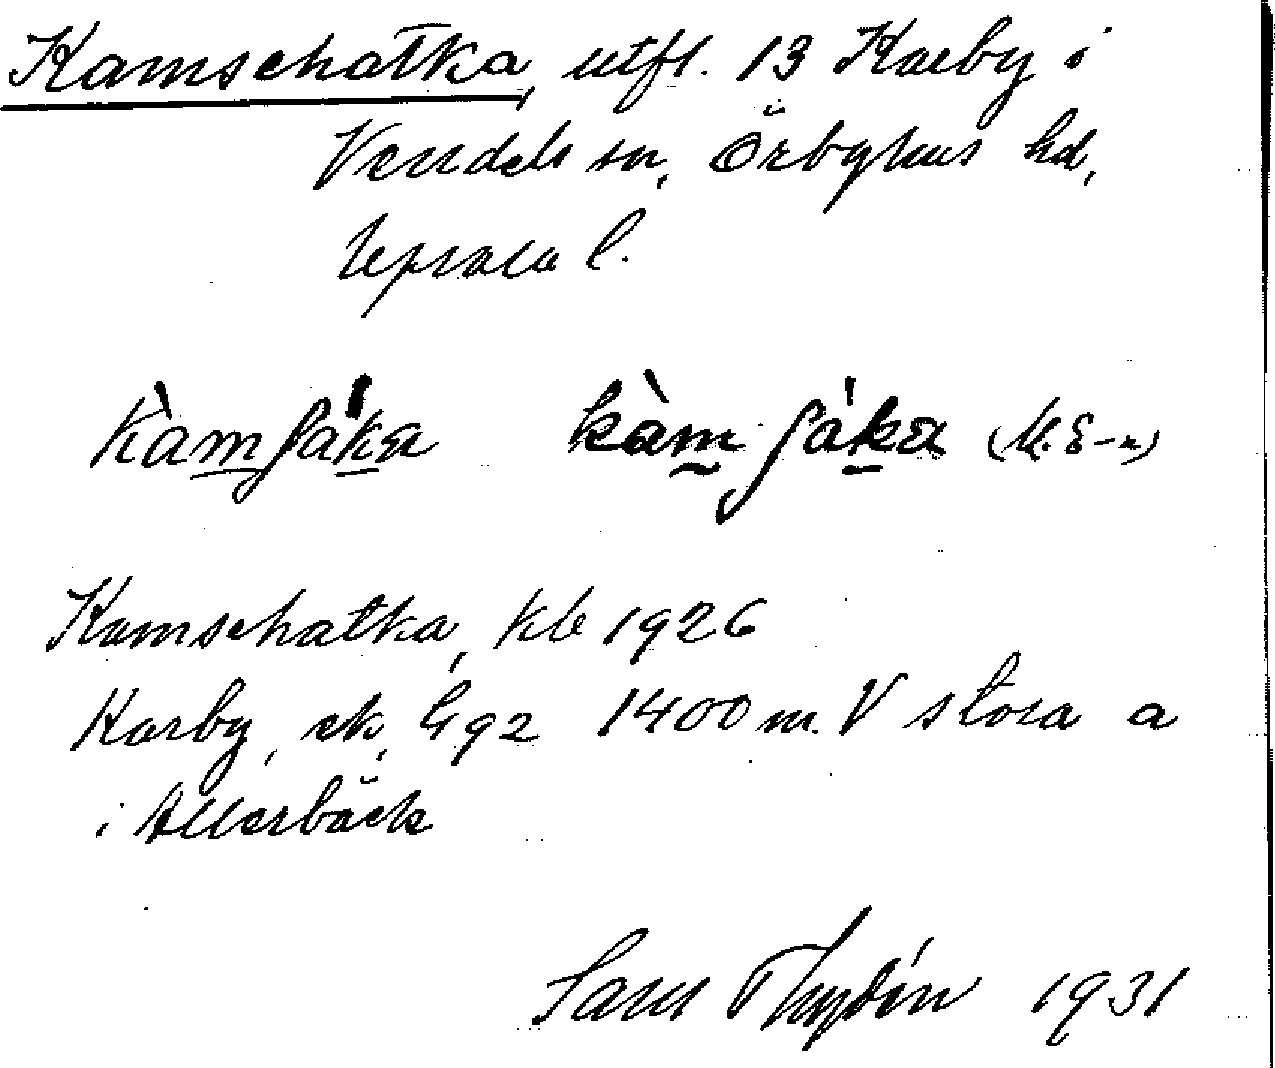 Kamschatka, utfl. 13 Karby i
Vendels sn, Örbyhus hd,
Uppsala l.
kàmʃákα kàm ʃákα (M. E-n)
Kamschatka, kb 1926
Karby, ek, 1400 m. V stora a
i Allerbäck
Sam Thydén 1931